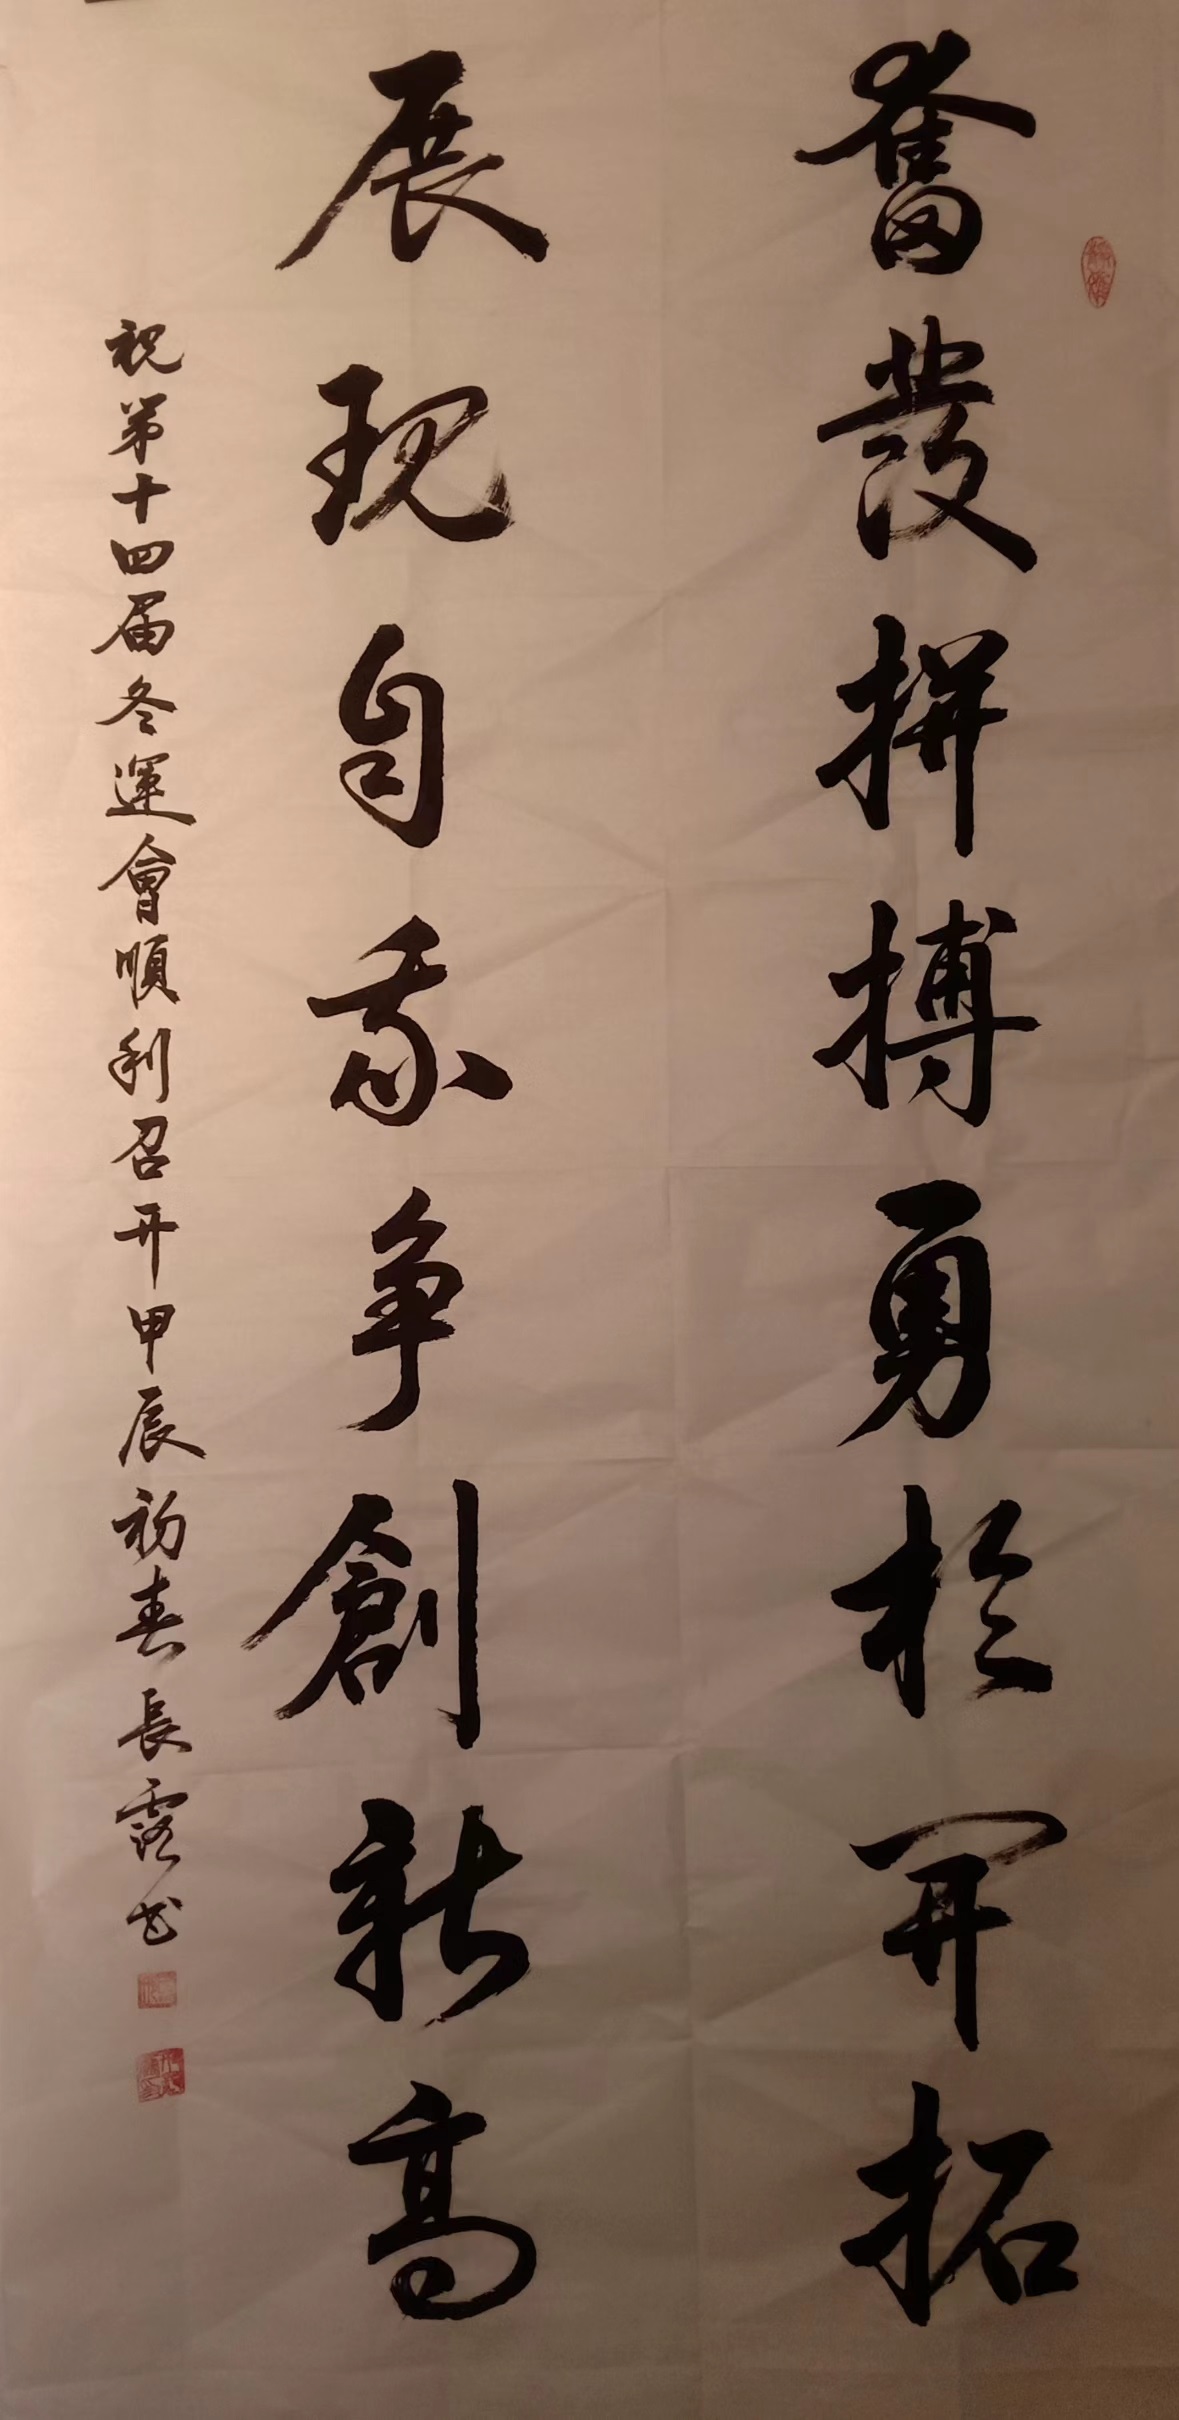 奮發拼搏勇於開拓
展現自我争創新高
祝第十四届冬運會順利召开甲辰初春長霞书